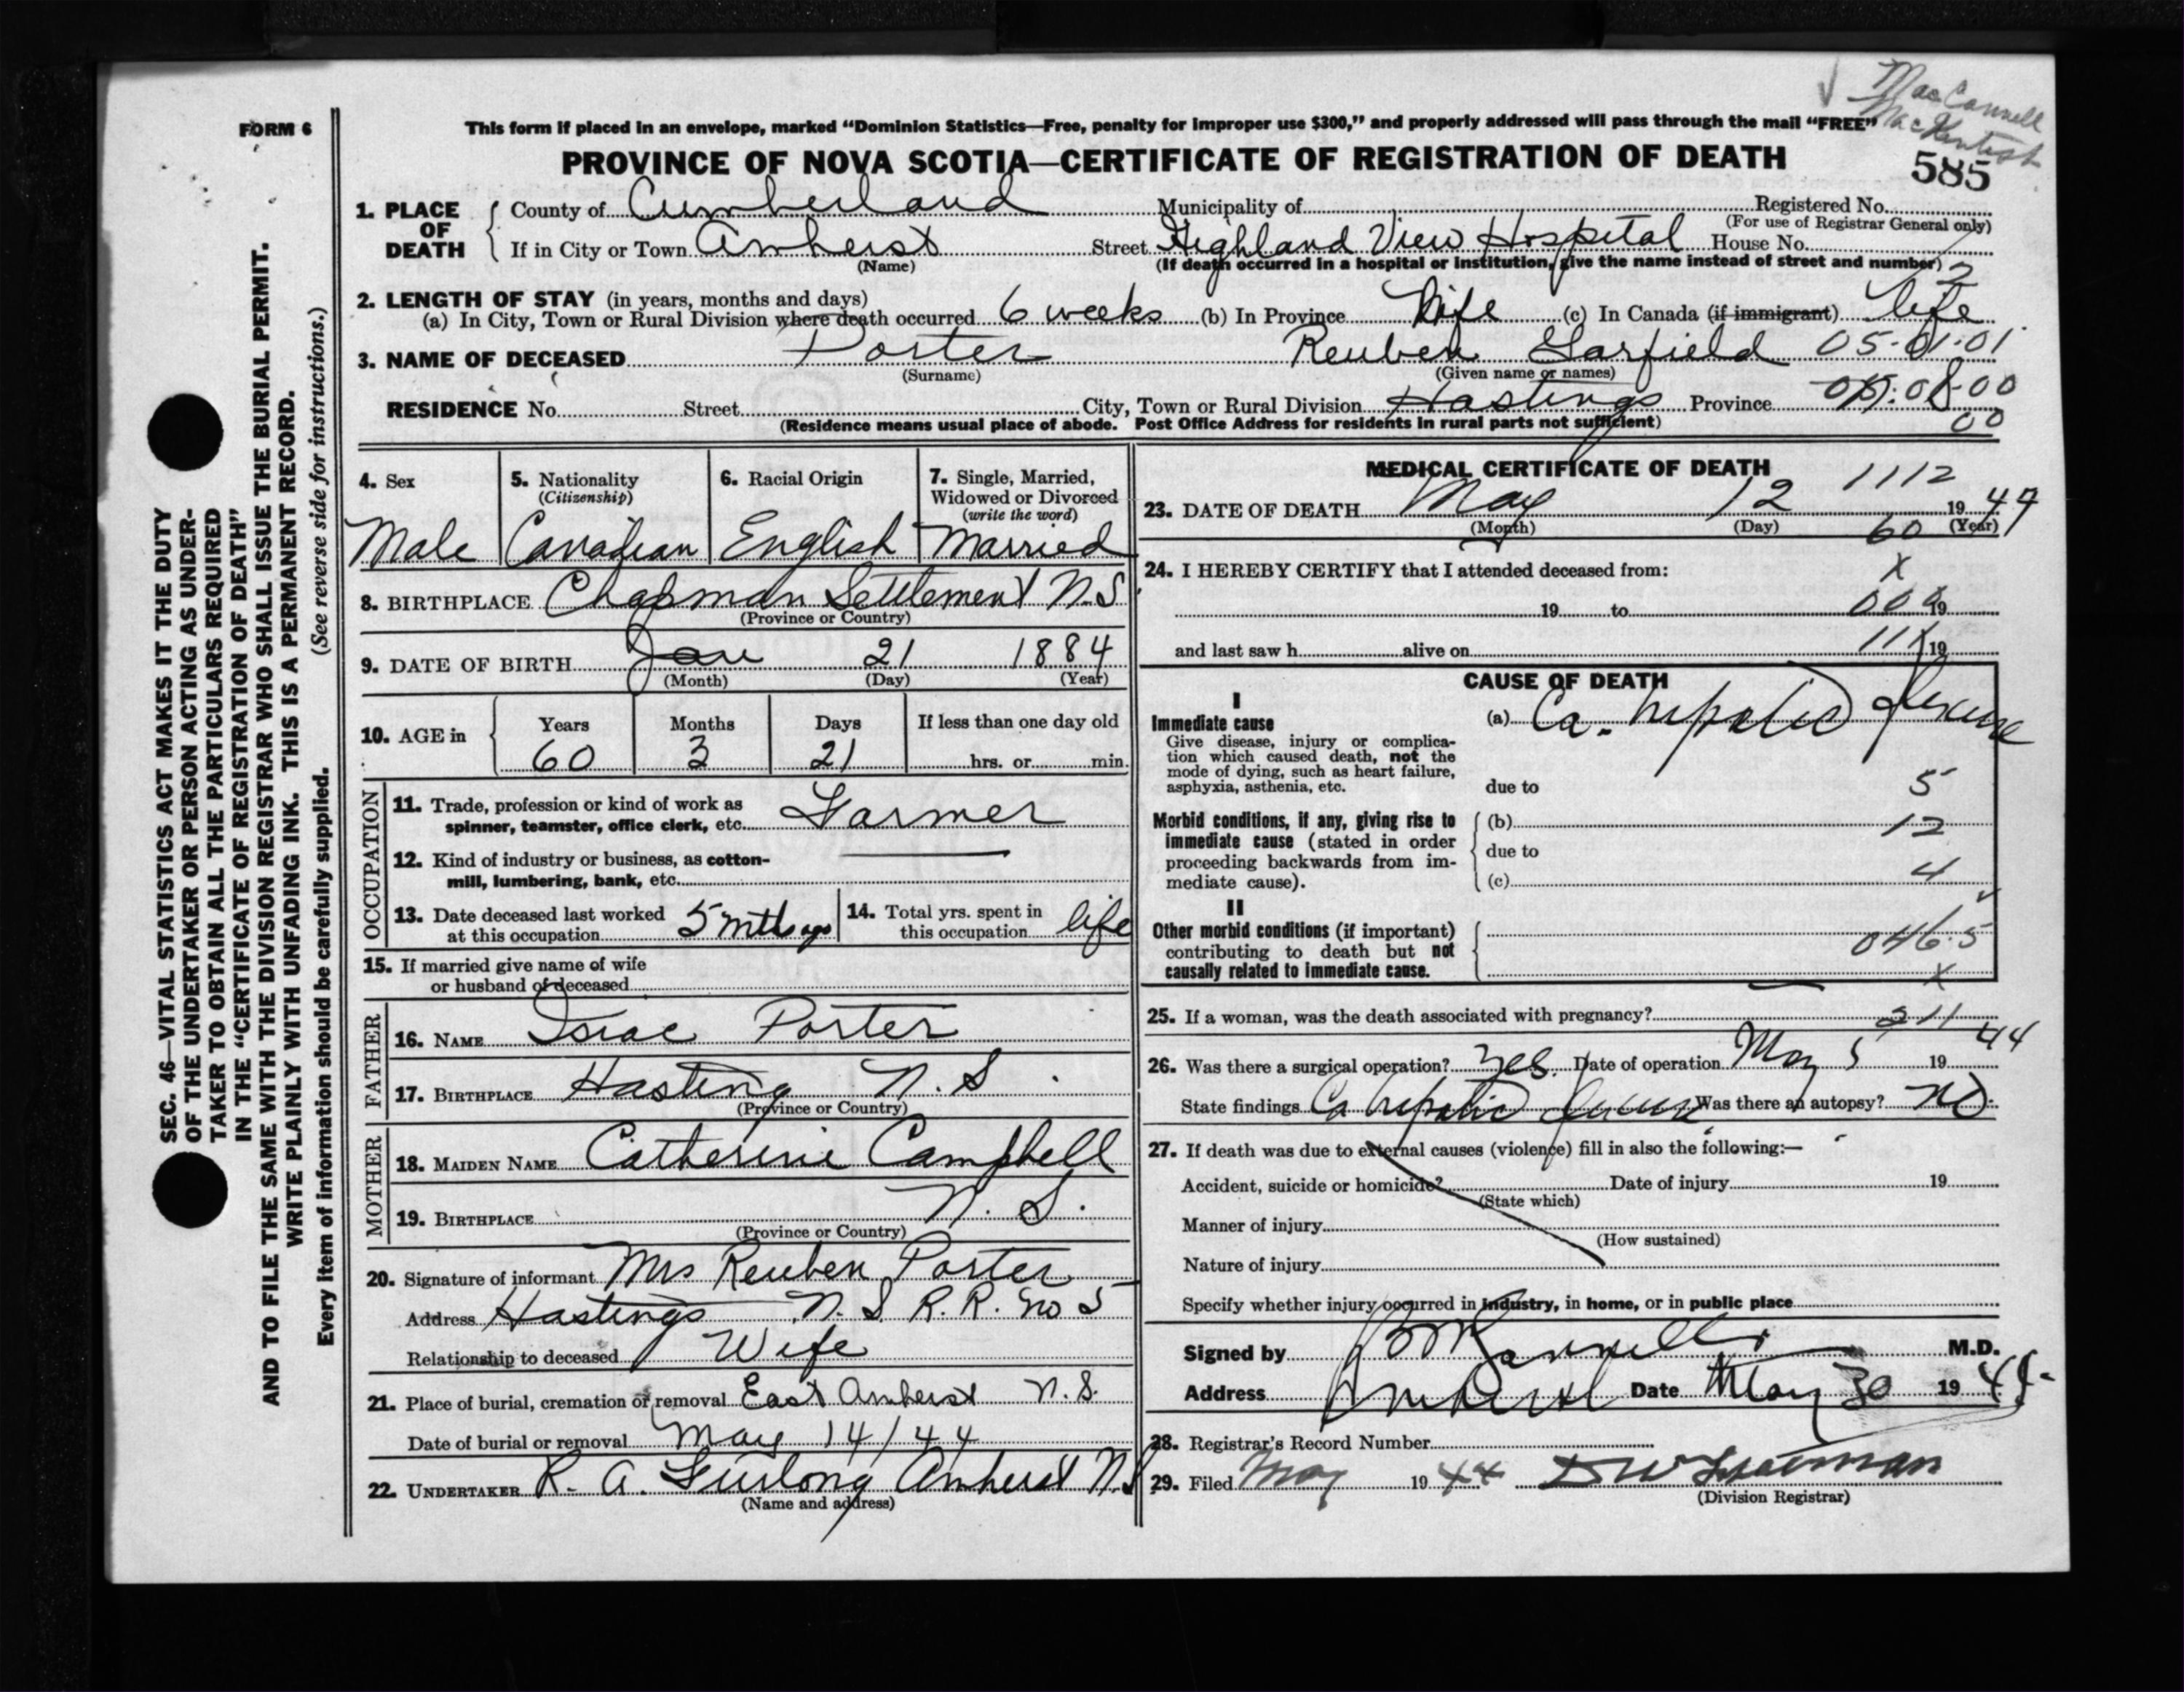 MacConnell
MacKintosh
FORM 6
This form if placed in an envelope, marked “Dominion Statistics—Free, penalty for improper use $300,” and properly addressed will pass through the mail “FREE”
PROVINCE OF NOVA SCOTIA—CERTIFICATE OF REGISTRATION OF DEATH
585
1. PLACE OF DEATH
County of Cumberland Municipality of Registered No.
(For use of Registrar General only)
If in City or Town Amherst Street Highland View Hospital House No.
(Name) (If death occurred in a hospital or institution, give the name instead of street and number)
2. LENGTH OF STAY (in years, months and days)
(a) In City, Town or Rural Division where death occurred 6 weeks (b) In Province life (c) In Canada (if immigrant) life
3. NAME OF DECEASED Porter Reuben Garfield 05-01-01
(Surname) (Given name or names)
RESIDENCE No. Street City, Town or Rural Division Hastings Province 08-00
00
(Residence means usual place of abode. Post Office Address for residents in rural parts not sufficient)
4. Sex 5. Nationality 6. Racial Origin 7. Single, Married,
(Citizenship) Widowed or Divorced
(write the word)
Male Canadian English Married
8. BIRTHPLACE Chapman Settlement N.S.
(Province or Country)
9. DATE OF BIRTH Jan 21 1884
(Month) (Day) (Year)
10. AGE in Years Months Days If less than one day old
60 3 21 hrs. or min.
OCCUPATION
11. Trade, profession or kind of work as
spinner, teamster, office clerk, etc. Farmer
12. Kind of industry or business, as cotton-
mill, lumbering, bank, etc.
13. Date deceased last worked
at this occupation 5 mths ago
14. Total yrs. spent in
this occupation life
15. If married give name of wife
or husband of deceased
FATHER
16. NAME Isiac Porter
17. BIRTHPLACE Hasting N.S.
(Province or Country)
MOTHER
18. MAIDEN NAME Catherine Campbell
19. BIRTHPLACE N.S.
(Province or Country)
20. Signature of informant Mrs Reuben Porter
Address Hastings N.S. R.R. No 5
Relationship to deceased Wife
21. Place of burial, cremation or removal East Amherst N.S.
Date of burial or removal May 14/44
22. UNDERTAKER R. A. Furlong Amherst N.S
(Name and address)
MEDICAL CERTIFICATE OF DEATH
1112
23. DATE OF DEATH May 12 1944
(Month) (Day) 60 (Year)
24. I HEREBY CERTIFY that I attended deceased from: X
19 to 000 19
and last saw h alive on 11X 19
CAUSE OF DEATH
I
Immediate cause
Give disease, injury or complica-
tion which caused death, not the
mode of dying, such as heart failure,
asphyxia, asthenia, etc.
(a) Ca. hepatic flexure
due to 5
Morbid conditions, if any, giving rise to
immediate cause (stated in order
proceeding backwards from im-
mediate cause).
(b) 12
due to
(c) 4
II
Other morbid conditions (if important)
contributing to death but not
causally related to immediate cause.
046.5
X
25. If a woman, was the death associated with pregnancy? 211
26. Was there a surgical operation? Yes. Date of operation May 5 1944
State findings Ca hepatic flexure Was there an autopsy? No.
27. If death was due to external causes (violence) fill in also the following:—
Accident, suicide or homicide? Date of injury 19
(State which)
Manner of injury
(How sustained)
Nature of injury
Specify whether injury occurred in industry, in home, or in public place
Signed by M.D.
Address Amherst Date May 30 1944
28. Registrar's Record Number
29. Filed May 1944
(Division Registrar)
SEC. 46—VITAL STATISTICS ACT MAKES IT THE DUTY
OF THE UNDERTAKER OR PERSON ACTING AS UNDER-
TAKER TO OBTAIN ALL THE PARTICULARS REQUIRED
IN THE “CERTIFICATE OF REGISTRATION OF DEATH”
AND TO FILE THE SAME WITH THE DIVISION REGISTRAR WHO SHALL ISSUE THE BURIAL PERMIT.
WRITE PLAINLY WITH UNFADING INK. THIS IS A PERMANENT RECORD.
Every item of information should be carefully supplied. (See reverse side for instructions.)